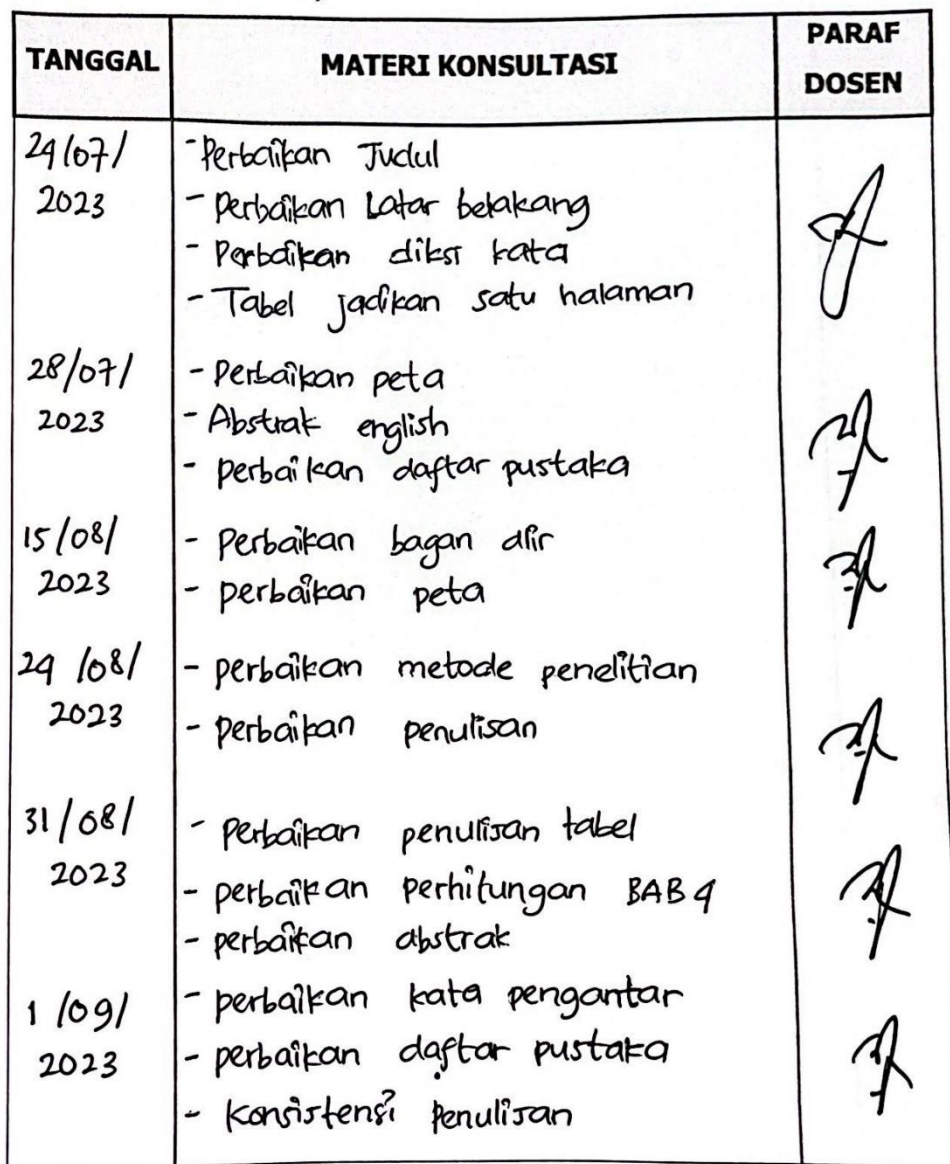 TANGGAL MATERI KONSULTASI PARAF DOSEN
24/07/ - Perbaikan Judul
2023 - Perbaikan Latar belakang
- Perbaikan diksi kata
- Tabel jadikan satu halaman
28/07/ - Perbaikan peta
2023 - Abstrak english
- perbaikan daftar pustaka
15/08/ - Perbaikan bagan alir
2023 - perbaikan peta
24/08/ - perbaikan metode penelitian
2023 - perbaikan penulisan
31/08/ - Perbaikan penulisan tabel
2023 - perbaikan perhitungan BAB 4
- perbaikan abstrak
1/09/ - perbaikan kata pengantar
2023 - perbaikan daftar pustaka
- Konsistensi Penulisan